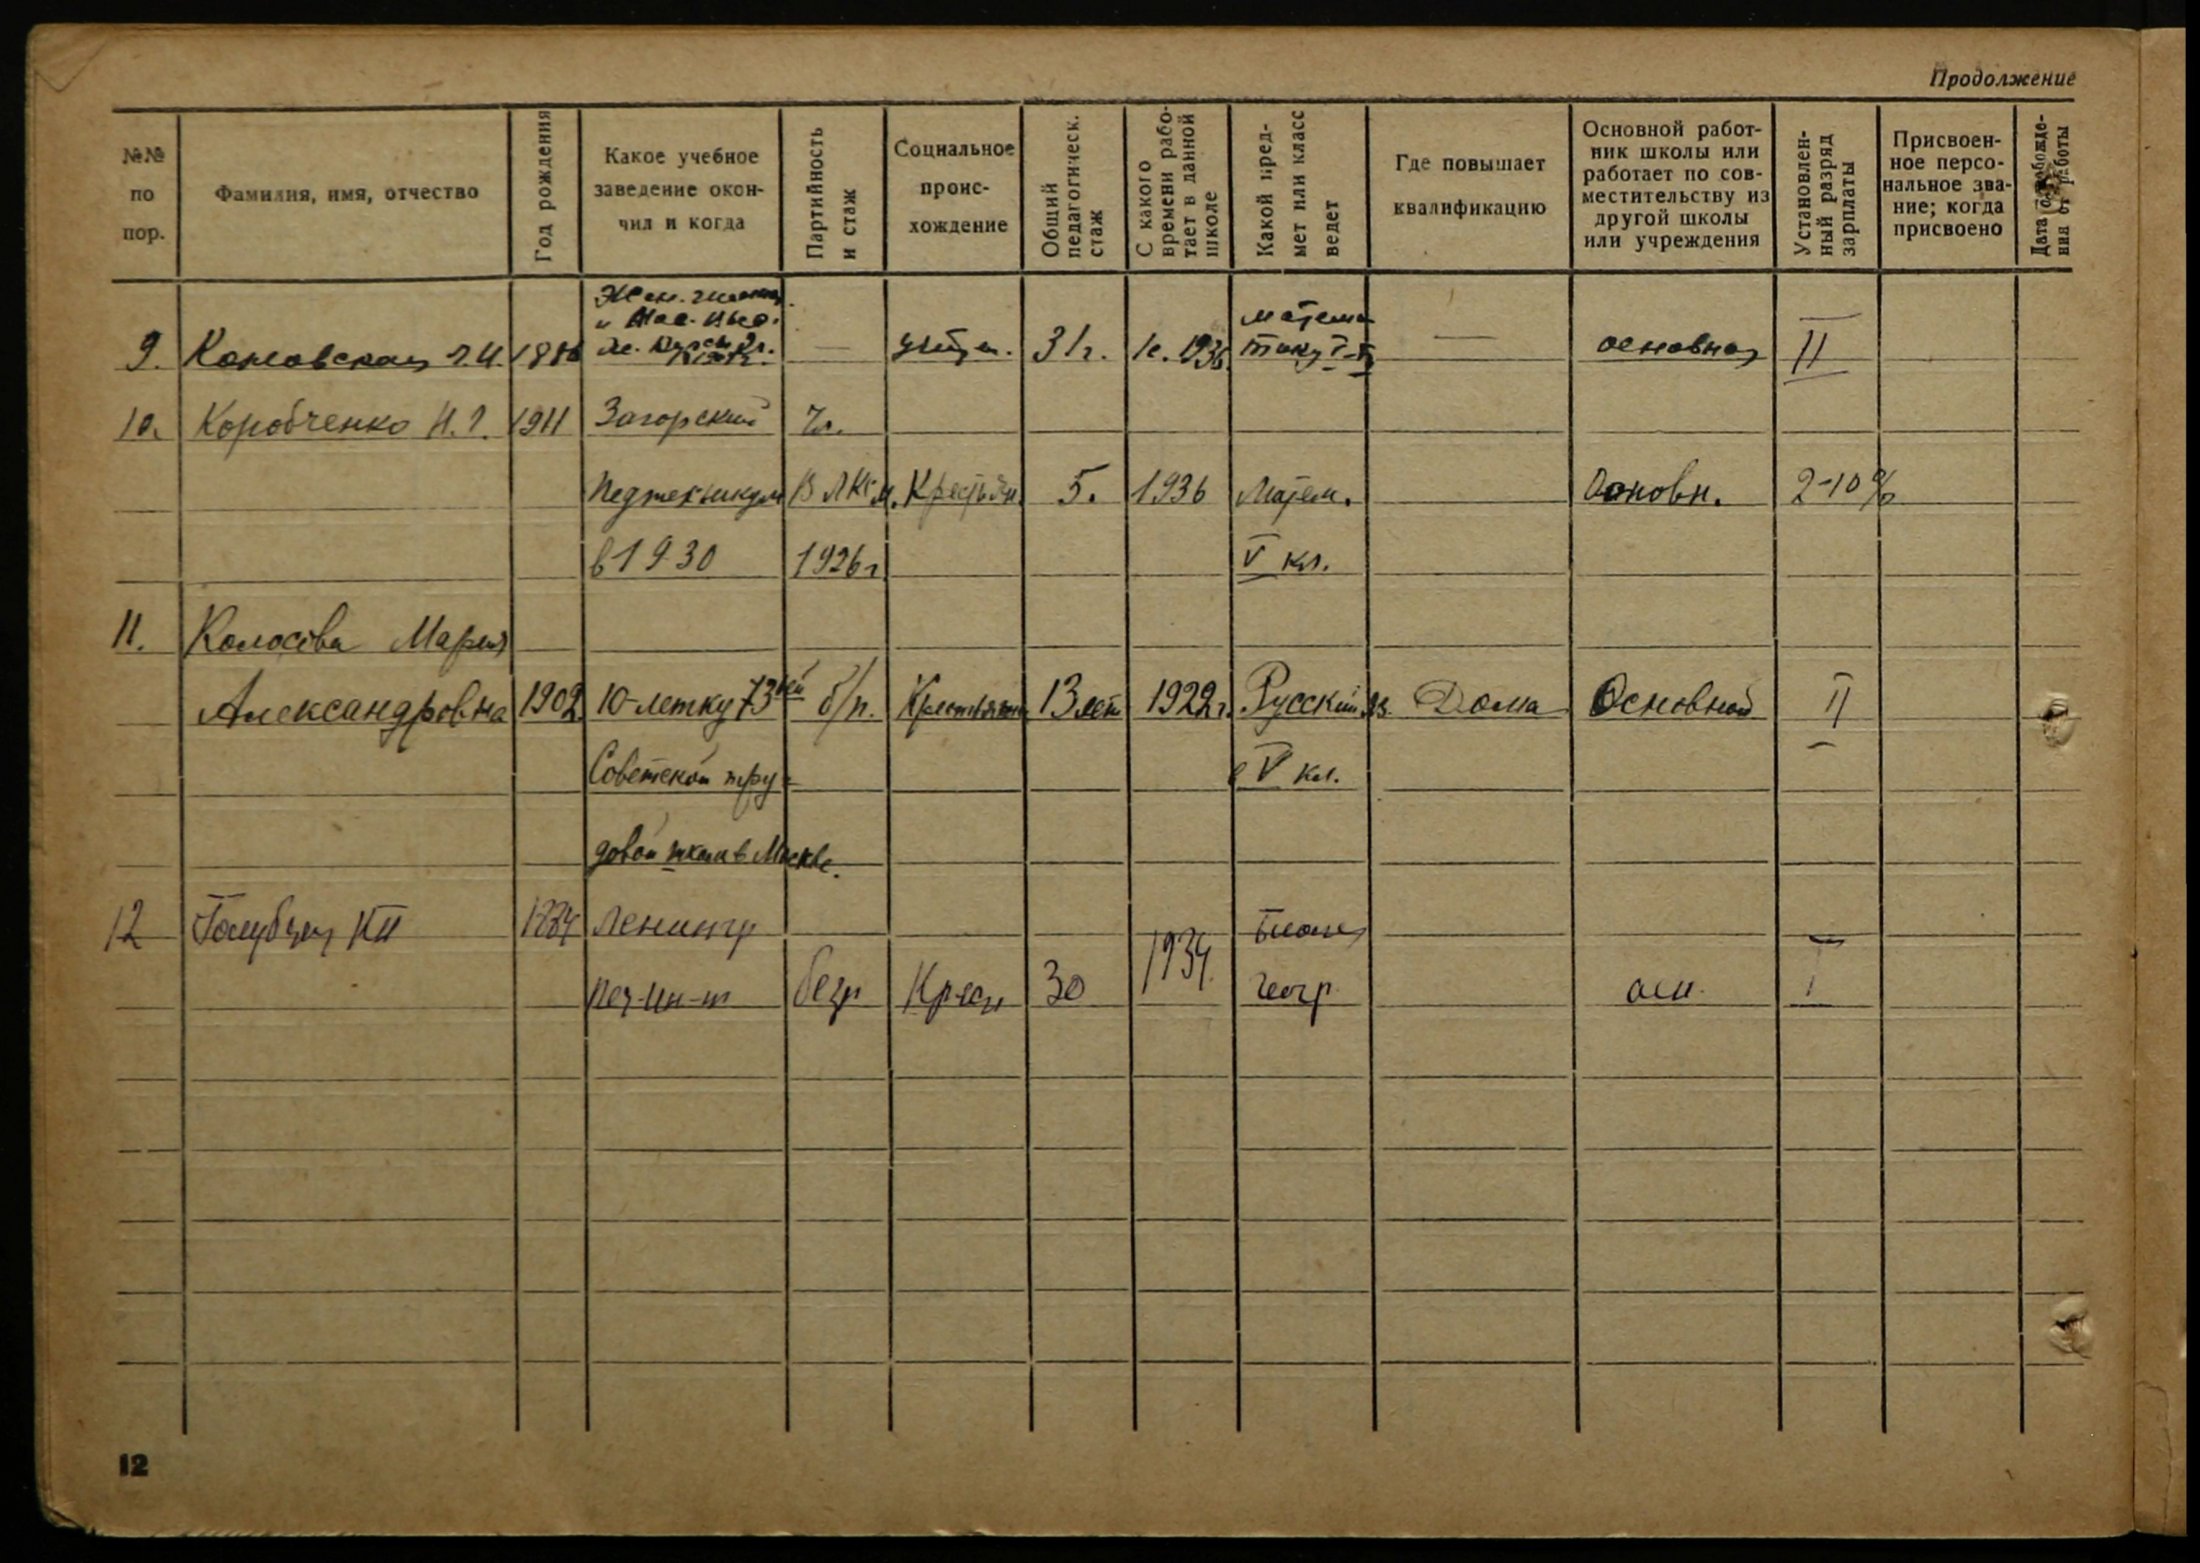 Продолжение
№№ по пор.
Фамилия, имя, отчество
Год рождения
Какое учебное заведение окон-
чил и когда
Партийность и стаж
Социальное проис-
хождение
Общий педагогическ. стаж
С какого времени рабо-
тает в данной школе
Какой пред-
мет или класс ведет
Где повышает квалификацию
Основной работ-
ник школы или
работает по сов-
местительству из
другой школы
или учреждения
Установлен-
ный разряд
зарплаты
Присвоен-
ное персо-
нальное зва-
ние; когда
присвоено
Дата освобожде-
ния от работы
9. 31г. 193 основная II
10. Коробченко Н.Г. 1911 Загорский
Педтехникум ВЛКСМ. Крестьян. 5. 1936 Матем. Основн. 2-10%
в 1930 1926г V кл.
11. Колосова Мария
Александровна 1902 10-летку 73ей б/п. Крестьян 13 лет 1922г. Русский яз. Дома Основной II
Советской тру-
довой школы в Москве.
в V кл.
12 КП Ленингр
Пед-ин-т Крест 30 1934. геогр осн. I
12